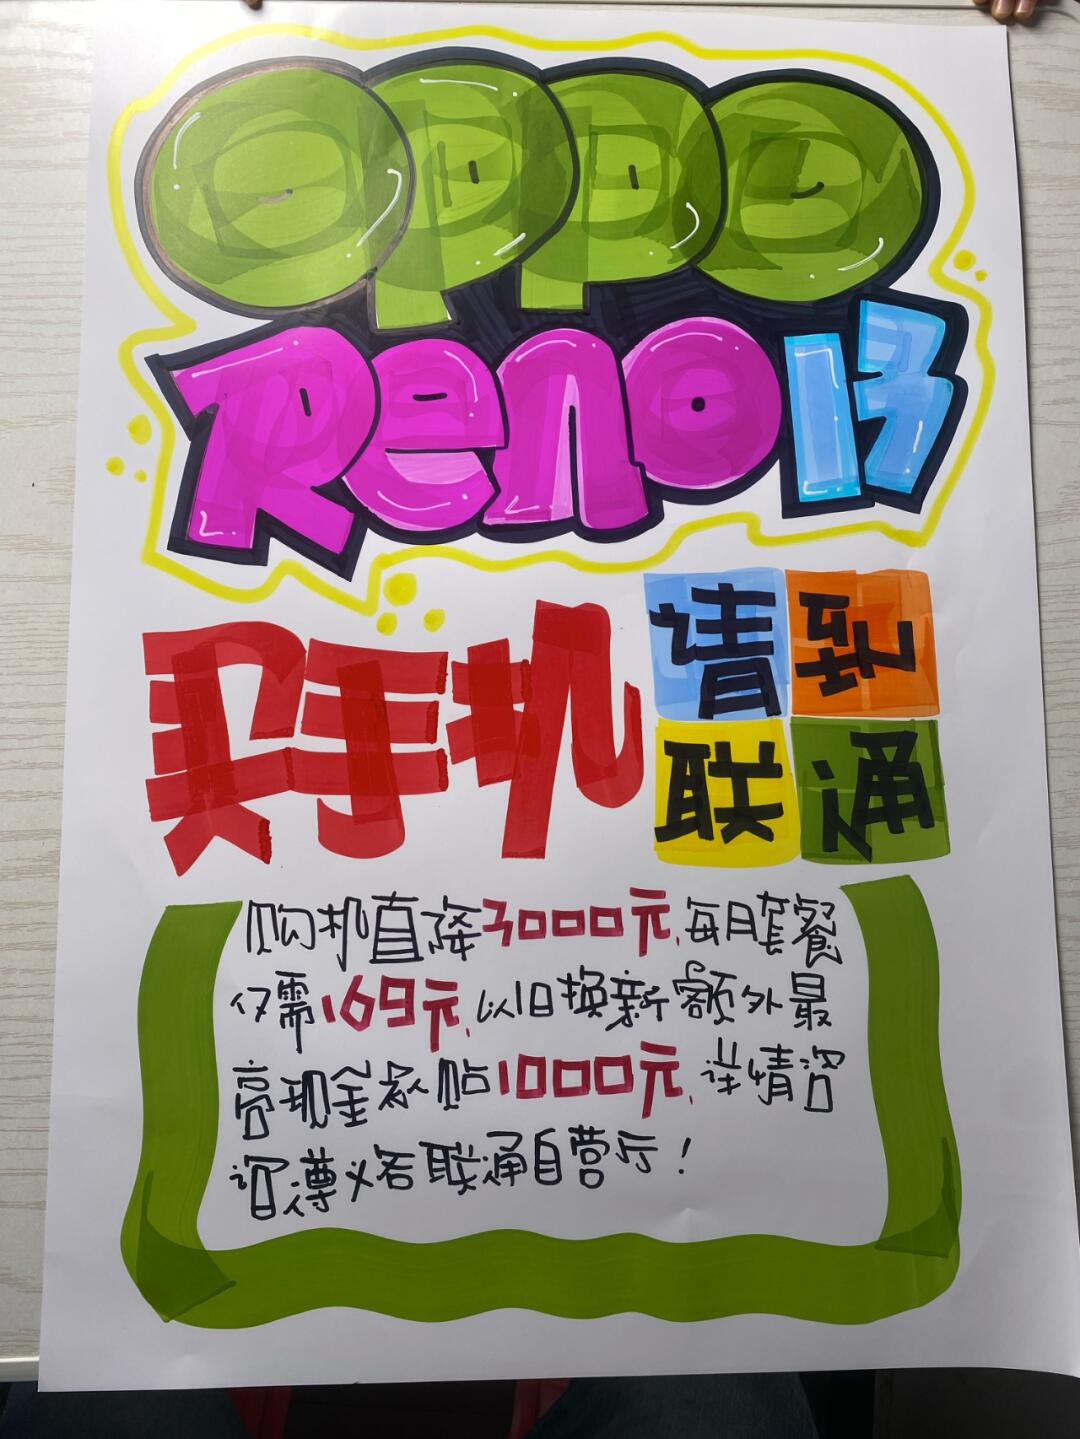 OPPO
Reno 13
买手机 请到
联通
购机直降3000元,每月套餐
仅需169元,以旧换新额外最
高现金补贴1000元,详情咨
询遵义各联通自营厅!